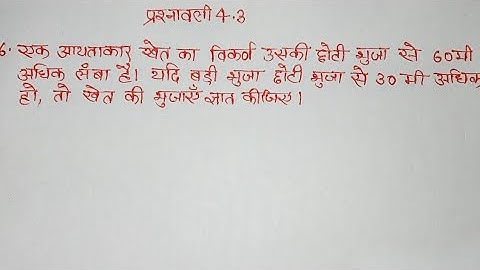 प्रश्नावली 4.3
6. एक आयताकार खेत का विकर्ण उसकी छोटी भुजा से 60 मी
अधिक लंबा है। यदि बड़ी भुजा छोटी भुजा से 30 मी अधिक
हो, तो खेत की भुजाएँ ज्ञात कीजिए।